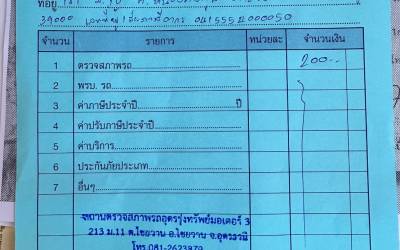 ที่อยู่
39000 เลขที่ผู้เสียภาษีอากร 0415552000050
จำนวน รายการ หน่วยละ จำนวนเงิน
1 ตรวจสภาพรถ 200.-
2 พรบ. รถ
3 ค่าภาษีประจำปี ปี
4 ค่าปรับภาษีประจำปี
5 ค่าบริการ
6 ประกันภัยประเภท
7 อื่นๆ
สถานตรวจสภาพรถอุดรรุ่งทรัพย์มอเตอร์ 3
213 ม.11 ต.ไชยวาน อ.ไชยวาน จ.อุดรธานี
โทร.081-2623979